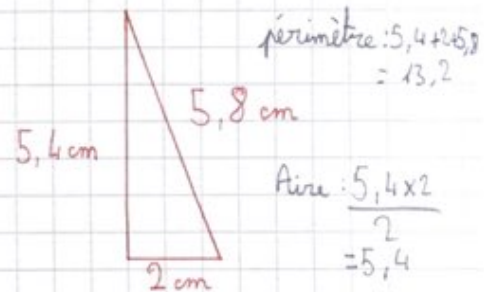 périmètre : 5,4+2+5,8
= 13,2
5,8 cm
5,4 cm
Aire : 5,4 × 2
2
= 5,4
2 cm